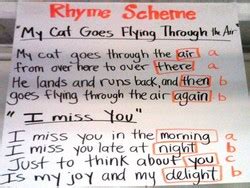 Rhyme Scheme
"My Cat Goes Flying Through the Air"
My cat goes through the air a
from over here to over there a
He lands and runs back, and then b
goes flying through the air again b
"I miss You"
I miss you in the morning a
I miss you late at night b
Just to think about you c
Is my joy and my delight b